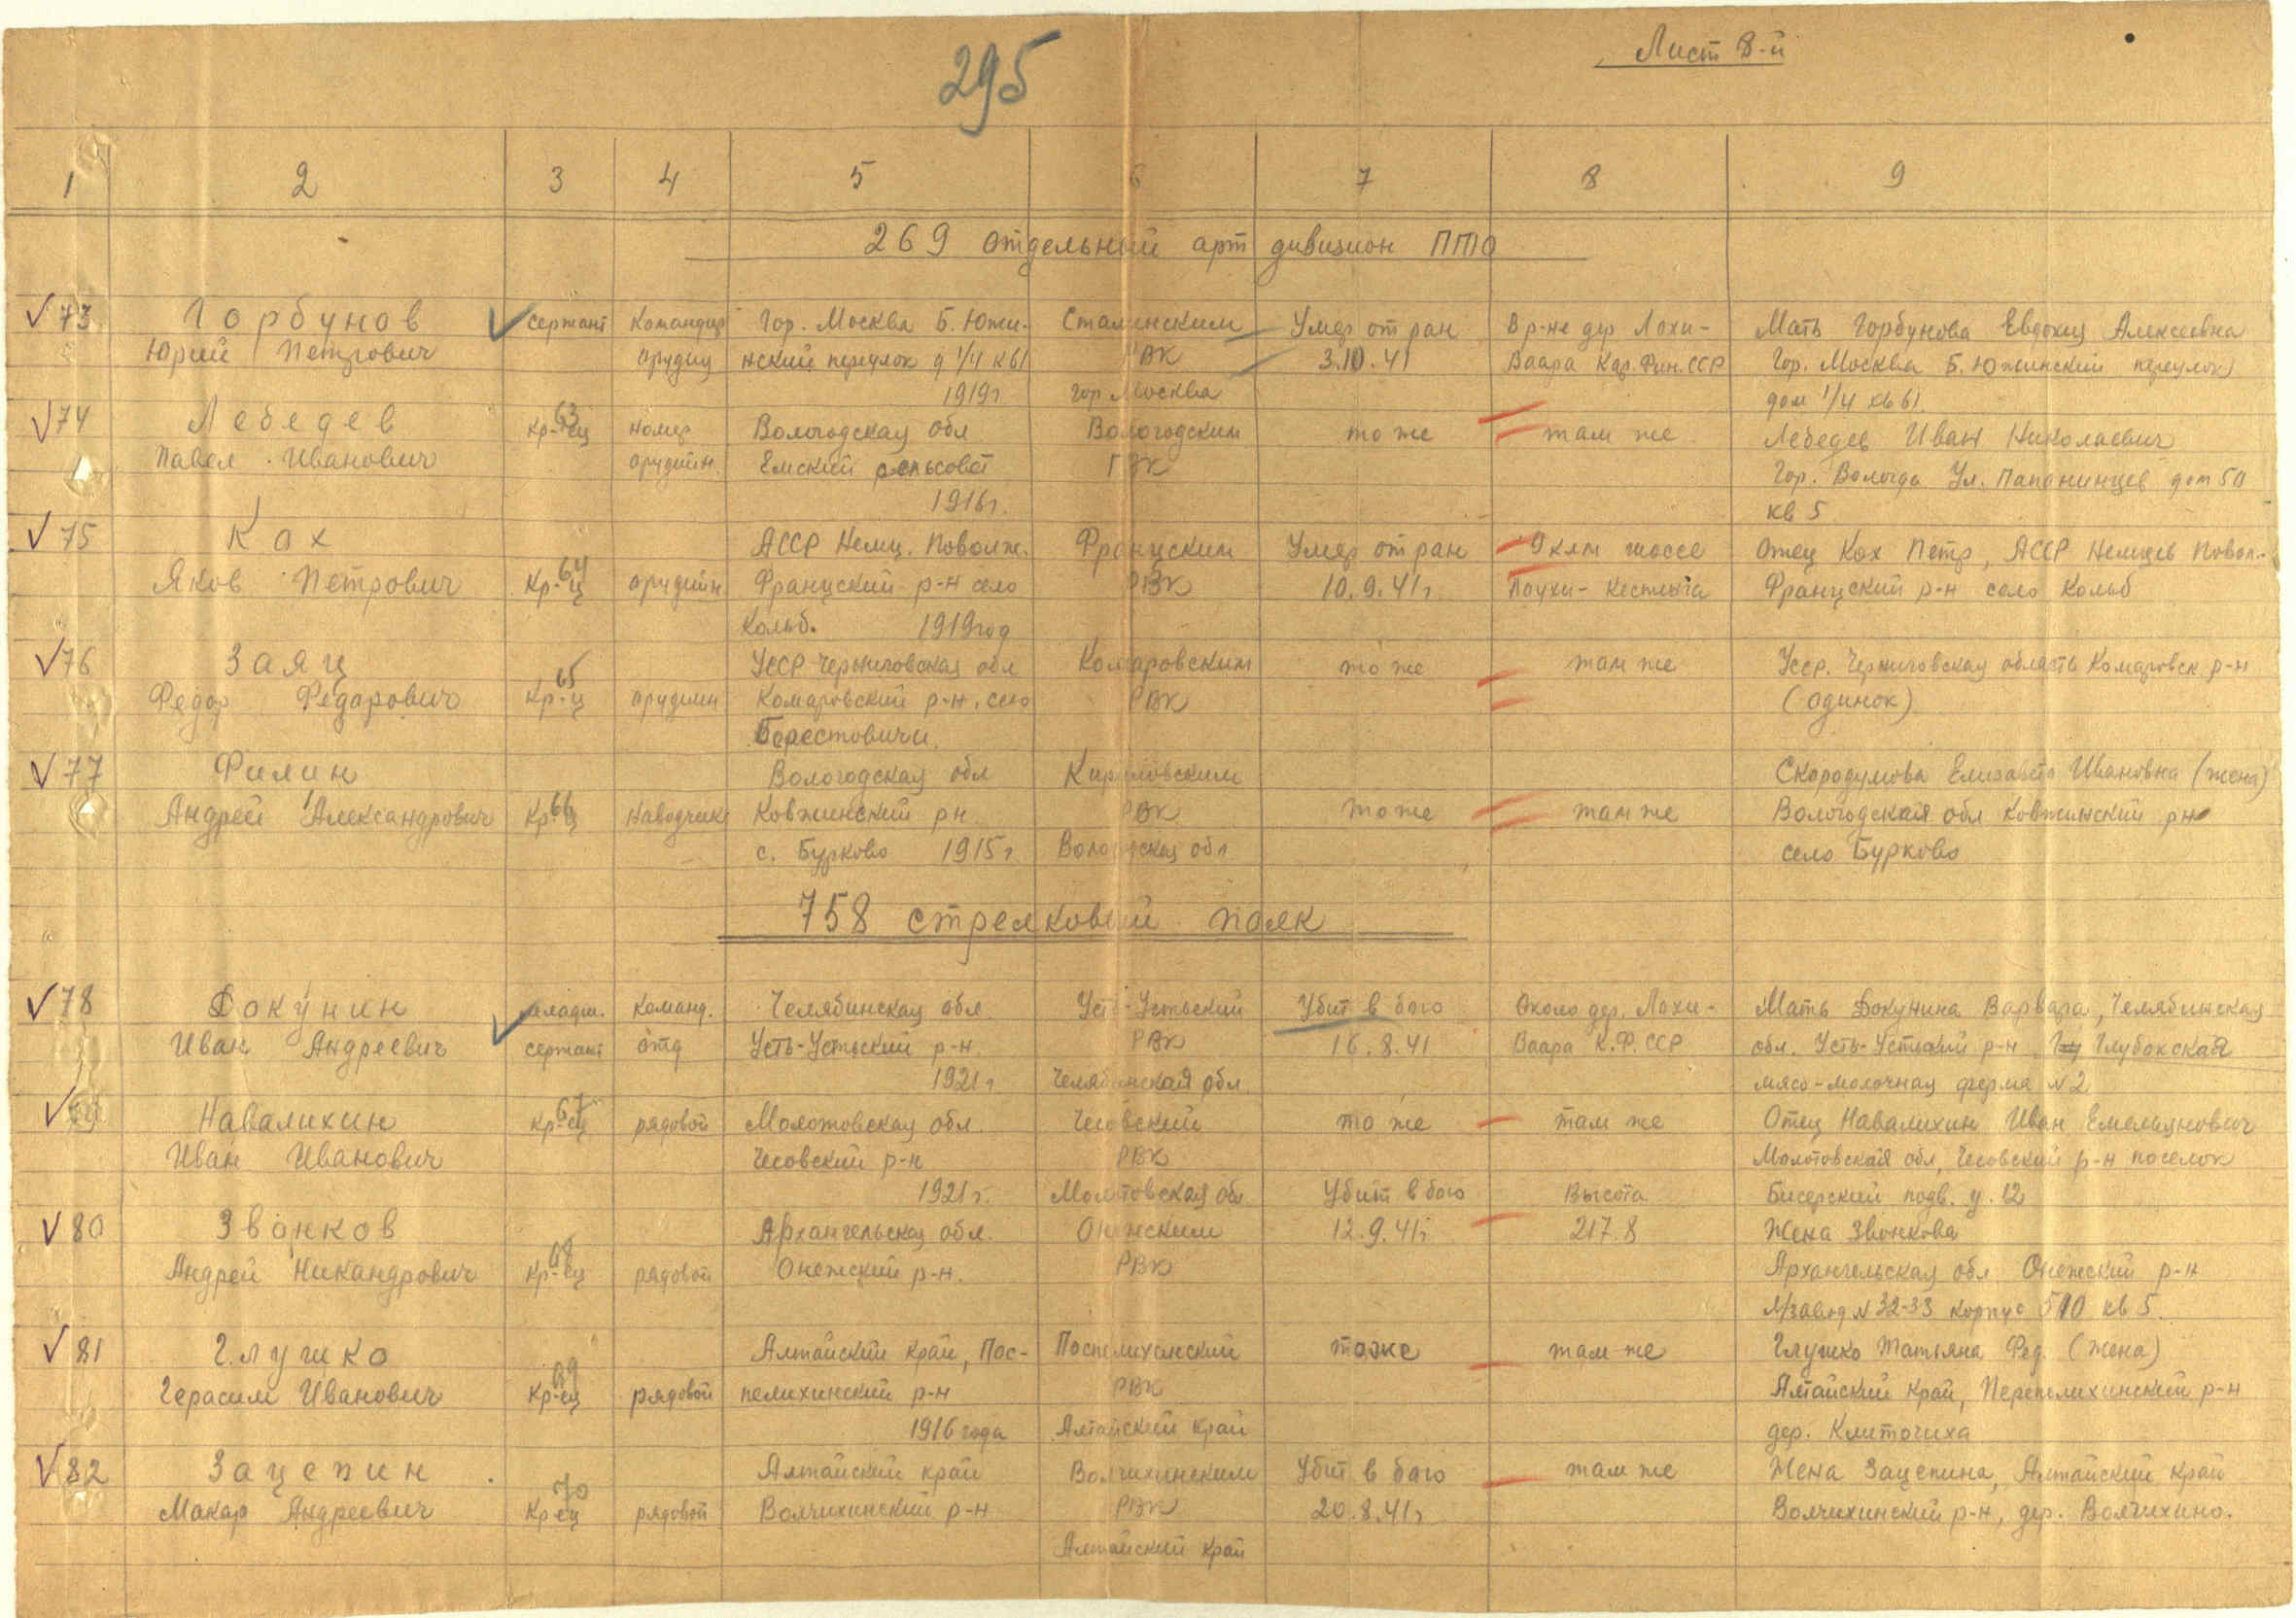 295
Лист 8-й
1 2 3 4 5 6 7 8 9
269 отдельный арт дивизион ПТО
73 Горбунов сержант Командир Гор. Москва Б. Южи- Сталинским Умер от ран В р-не дер Лохи- Мать Горбунова Евдокия Алексеевна
Юрий Петрович орудия нский переулок д 1/4 кв 61 РВК 3.10.41 Ваара Кар. Фин. ССР Гор. Москва Б. Южинский переулок
1919г гор Москва дом 1/4 кв 61.
74 Лебедев кр-ец 63 номер Вологодская обл Вологодским то же там же Лебедев Иван Николаевич
Павел Иванович орудийн. Емский сельсовет ГВК Гор. Вологда Ул. Папанинцев дом 50
1916г. кв 5
75 Кох АССР Немц. Поволж. Францским Умер от ран 9 клм шоссе Отец Кох Петр, АССР Немцев Повол.-
Яков Петрович Кр-ц 64 орудийн Францский р-н село РВК 10.9.41г Лоухи-Кестеньга Францский р-н село Кольб
Кольб. 1919 год
76 Заяц УССР Черниговская обл Комаровским то же там же Усср. Черниговская область Комаровск р-н
Федор Федорович Кр-ц 65 орудийн Комаровский р-н, село РВК (одинок)
Берестовичи
77 Филин Вологодская обл Кирилловским Скородумова Елизавета Ивановна (жена)
Андрей Александрович Кр-ц 66 наводчик Ковжинский рн. РВК то же там же Вологодская обл Ковжинский рн
с. Бурково 1915г Вологодская обл село Бурково
758 стрелковый полк
78 Докунин младш. команд. Челябинская обл. Усть-Устьский Убит в бою Около дер. Лохи- Мать Докунина Варвара, Челябинская
Иван Андреевич сержант отд Усть-Устьский р-н. РВК 16.8.41 Ваара К.Ф. ССР обл. Усть-Устьский р-н Глубокская
1921г Челябинская обл. мясо-молочная ферма N2
Навалихин кр-ец 67 рядовой Молотовская обл. Чесовский то же там же Отец Навалихин Иван Емельянович
Иван Иванович Чесовский р-н РВК Молотовская обл, Чесовский р-н поселок
1921г. Молотовская обл Убит в бою Высота Бисерский подв. у. 12
80 Звонков Архангельская обл. Онежским 12.9.41г 217.8 Жена Звонкова
Андрей Никандрович Кр-ец 68 рядовой Онежский р-н. РВК Архангельская обл Онежский р-н
Л/завод N 32-33 корпус 510 кв 5.
81 Глушко Алтайский край, Пос- Поспелихинский тоже там же Глушко Татьяна Фед. (жена)
Герасим Иванович Кр-ец 69 рядовой пелихинский р-н РВК Алтайский край, Перепелихинский р-н
1916 года Алтайский край дер. Клиточиха
82 Зацепин Алтайский край Волчихинским Убит в бою там же Жена Зацепина, Алтайский край
Макар Андреевич Кр ец 70 рядовой Волчихинский р-н РВК 20.8.41г Волчихинский р-н, дер. Волчихино.
Алтайский край